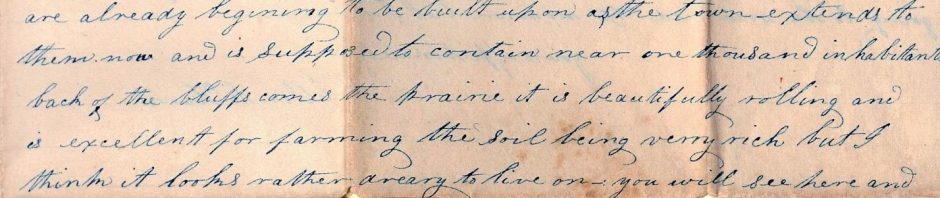 are already begining to be built upon as the town extends to
them now and is supposed to contain near one thousand inhabitants
back of the bluffs comes the prairie it is beautifully rolling and
is excellent for farming the soil being verry rich but I
think it looks rather dreary to live on - you will see here and